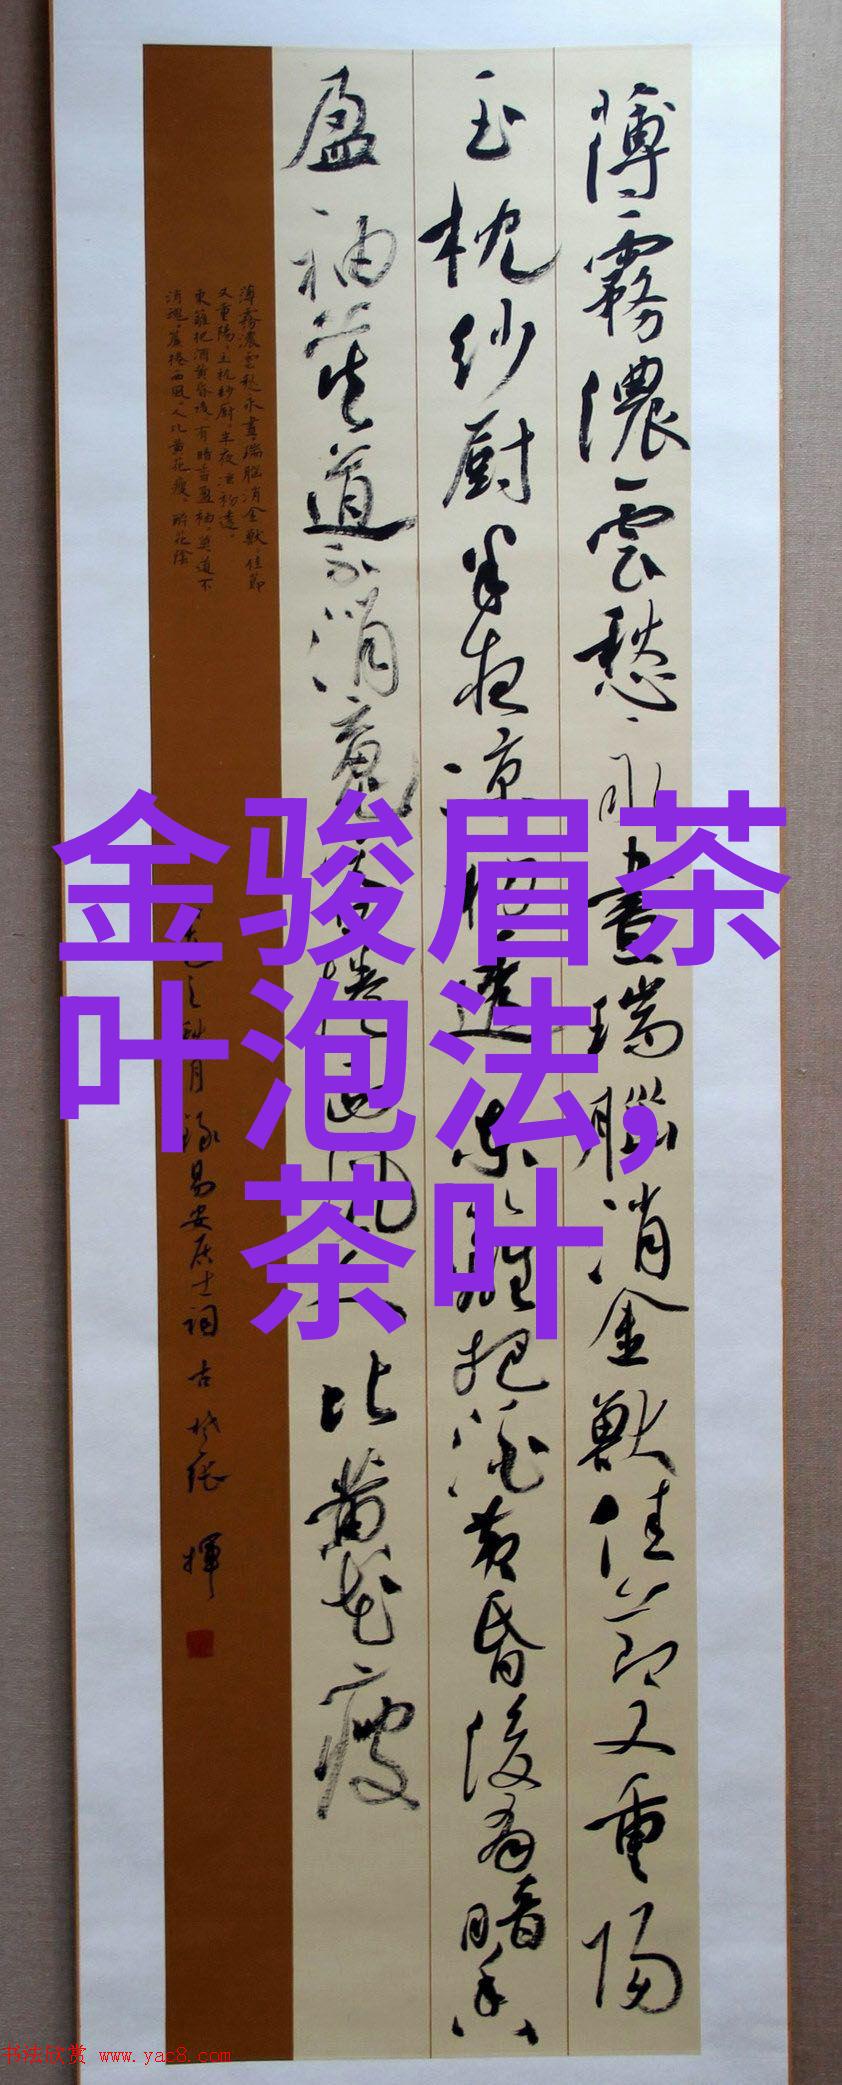 薄霧濃雲愁永晝瑞腦消金獸佳節又重陽
玉枕紗厨半夜涼初透東籬把酒黃昏後有暗香
盈袖莫道不消魂簾捲西風人比黃花瘦
薄霧濃雲愁永晝，瑞腦消金獸。佳節
又重陽，玉枕紗厨，半夜涼初透。
東籬把酒黃昏後，有暗香盈袖。莫道不
消魂，簾捲西風，人比黃花瘦。醉花陰
之秋月錄易安居士詞 古 張 揮
金骏眉茶
叶泡法,
茶叶
书法欣赏 www.yac8.com